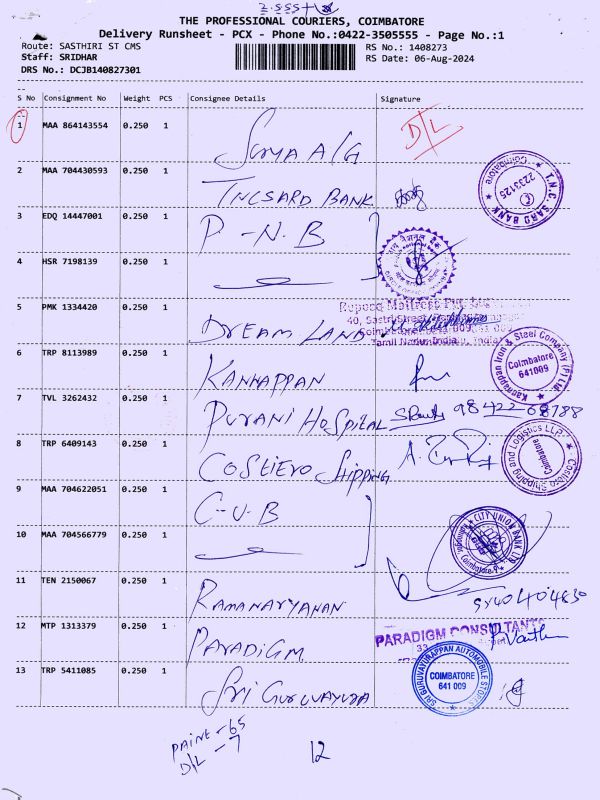 2.555+
THE PROFESSIONAL COURIERS, COIMBATORE
Delivery Runsheet - PCX - Phone No.:0422-3505555 - Page No.:1
Route: SASTHIRI ST CMS
Staff: SRIDHAR
DRS No.: DCJB140827301
RS No.: 1408273
RS Date: 06-Aug-2024
S No Consignment No Weight PCS Consignee Details Signature
1 MAA 864143554 0.250 1 Surya A/G D/L
2 MAA 704430593 0.250 1 TNCSARD BANK
T.N.C. SARD BANK 2233125 Coimbatore
3 EDQ 14447001 0.250 1 P-N.B
4 HSR 7198139 0.250 1
5 PMK 1334420 0.250 1 DREAM LAND
Repose Mattress Pvt.
40, Sastri Street,
Tamil Nadu, India
6 TRP 8113989 0.250 1 KANNAPPAN
Kannappan Iron & Steel Company (P) Ltd Coimbatore 641009
7 TVL 3262432 0.250 1 PURANI HOSPITAL 98422 68788
8 TRP 6409143 0.250 1 COSTIERO SHIPPING
Costiero Shipping and Logistics LLP Coimbatore
9 MAA 704622051 0.250 1 C-U-B
10 MAA 704566779 0.250 1
CITY UNION BANK LTD Coimbatore
11 TEN 2150067 0.250 1 RAMANARYANAN 9840404830
12 MTP 1313379 0.250 1 PARADIGM
PARADIGM CONSULTANTS
13 TRP 5411085 0.250 1 Sri GURUVAYURA
SRI GURUVAYURAPPAN AUTOMOBILE STORES COIMBATORE 641 009
PAINE - 65
D/L - 7
12